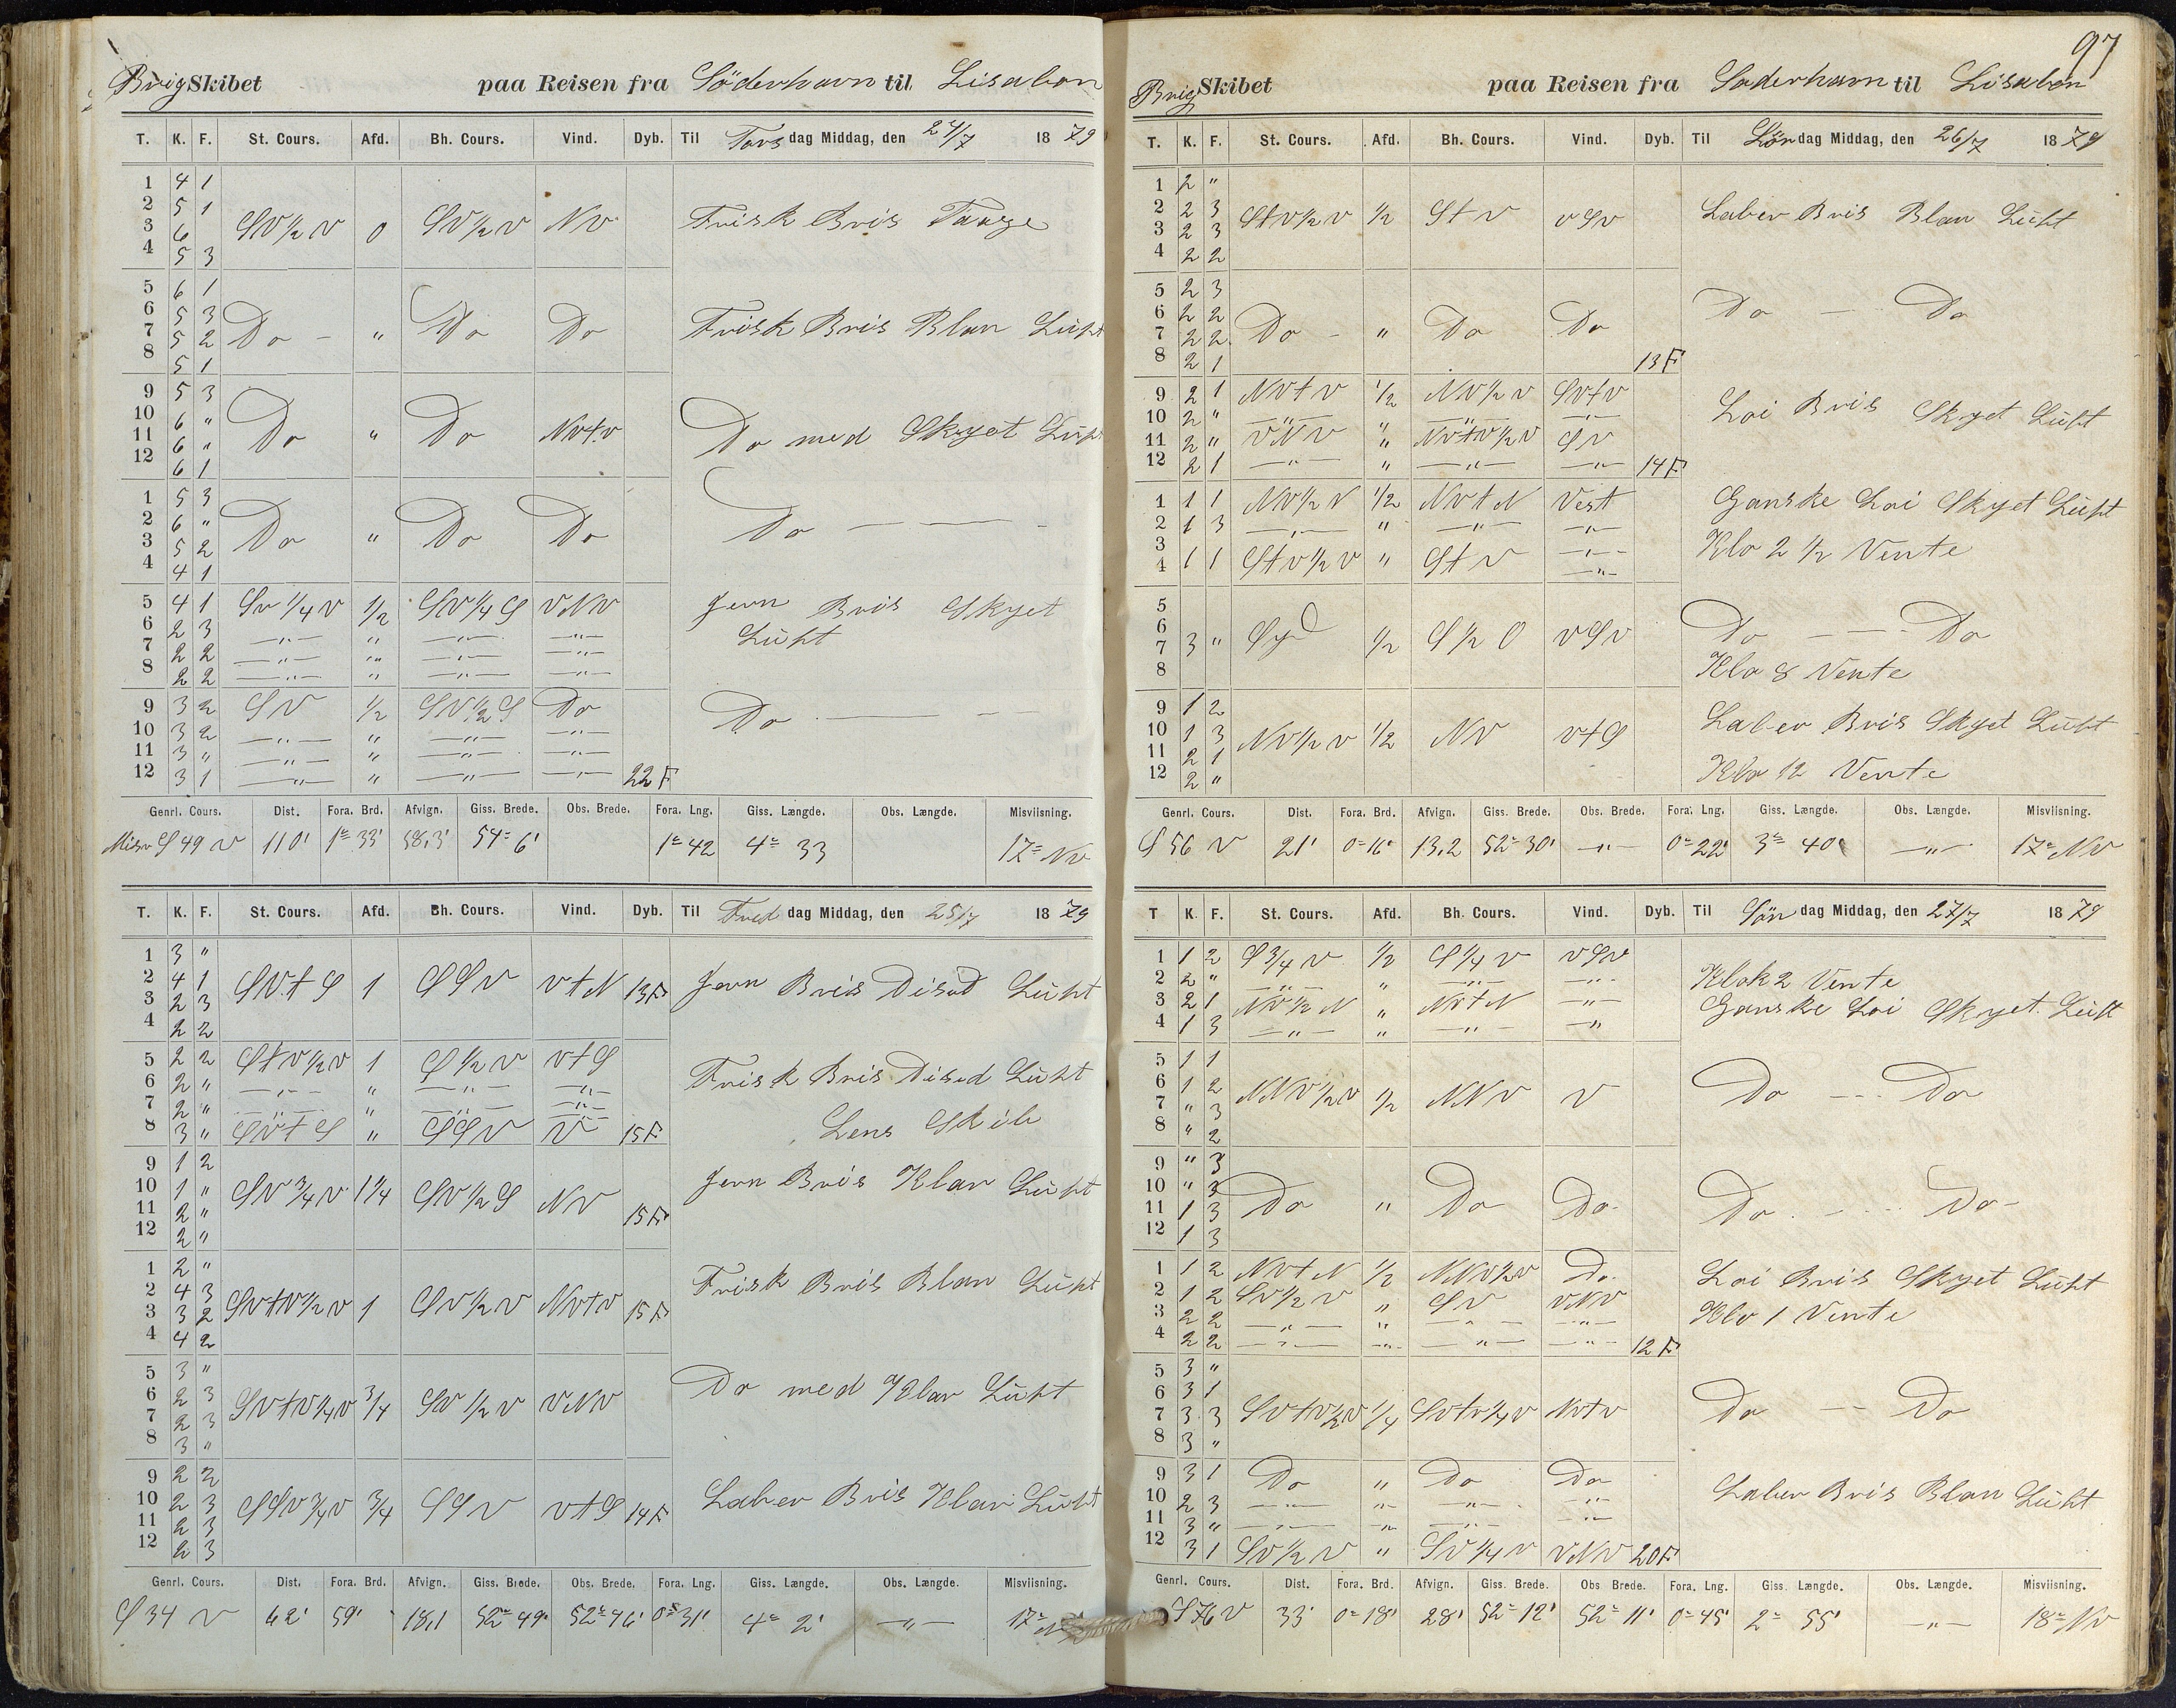 Brig Skibet paa Reisen fra Söderhavn til Lisabon
T. K. F. St. Cours. Afd. Bh. Cours. Vind. Dyb. Til Tors dag Middag, den 24/7 1879
1 4 1
2 5 1
3 6 SV½V 0 SV½V NV Frisk Bris Taage
4 5 3
5 6 1
6 5 3
7 5 2 Do — " Do Do Frisk Bris Blan Luft
8 5 1
9 5 3
10 6 "
11 6 " Do " Do NVtV Do med Skyet Luft
12 6 1
1 5 3
2 6 "
3 5 2 Do " Do Do Do — —
4 4 1
5 4 1 SV¼V ½ SV¼S VNV Jevn Bris Skyet
6 2 3 —"— " —"— —"— Luft
7 2 2 —"— " —"— —"—
8 2 2 —"— " —"— —"—
9 3 2 SV ½ SV½S Do Do — —
10 3 2 —"— " —"— —"—
11 3 " —"— " —"— —"—
12 3 1 —"— " —"— —"— 22 F
Genrl. Cours. Dist. Fora. Brd. Afvign. Giss. Brede. Obs. Brede. Fora. Lng. Giss. Længde. Obs. Længde. Misviisning.
Misv S 49 V 110' 1° 33' 58,3' 54° 6' 1° 42 4° 33 17° NV
T. K. F. St. Cours. Afd. Bh. Cours. Vind. Dyb. Til Fred dag Middag, den 25/7 1879
1 3 "
2 4 1
3 2 3 SVtS 1 SSV VtN 13F Jevn Bris Disød Luft
4 2 2
5 2 2 StV½V 1 S½V VtS Frisk Bris Dised Luft
6 2 " —"— " —"— —"—
7 2 " —"— " —"— —"—
8 3 " SVtS " SSV V 15F Lens Skib
9 1 2
10 1 " SV¾V 1¼ SV½S NV 15F Jevn Bris Klar Luft
11 2 "
12 2 "
1 2 "
2 4 3 SVtV½V 1 SV½V NVtV 15F Frisk Bris Blan Luft
3 3 2
4 4 2
5 3 "
6 2 3 SVtV¼V ¾ SV½V VNV Do med Klar Luft
7 2 3
8 3 "
9 2 2
10 2 3 SSV¾V ¾ SSV VtS 14F Laber Bris Klar Luft
11 2 3
12 2 3
Genrl. Cours. Dist. Fora. Brd. Afvign. Giss. Brede. Obs. Brede. Fora. Lng. Giss. Længde. Obs. Længde. Misviisning.
S 34 V 62' 59' 18,1 52° 49' 52° 46' 0° 31' 4° 2' —"— 17°
97
Brig Skibet paa Reisen fra Søderhavn til Lisabon
T. K. F. St. Cours. Afd. Bh. Cours. Vind. Dyb. Til Lör dag Middag, den 26/7 1879
1 2 "
2 2 3 StV½V ½ StV VSV Laber Bris Blan Luft
3 2 3
4 2 2
5 2 3
6 2 2 Do — " Do Do Do — Do
7 2 2
8 2 1 13F
9 2 1 NVtV ½ NV½V SVtV Loi Bris Skyet Luft
10 2 " —"— " —"— —"—
11 2 " VNV " NVtV½V SV
12 2 1 —"— " —"— —"— 14F
1 1 1 NV½N ½ NVtN Vest Ganske Loi Skyet Luft
2 1 3 —"— " —"— —"—
3 Klo 2 ½ Vente
4 1 1 StV½V " StV —"—
5
6 Do — Do
7 3 " Syd ½ S½O VSV
8 Klo 8 Vente
9 1 2 Laber Bris Skyet Luft
10 1 3 NV½V ½ NV VtS
11 2 1
12 2 " Klo 12 Vente
Genrl. Cours. Dist. Fora. Brd. Afvign. Giss. Brede. Obs. Brede. Fora. Lng. Giss. Længde. Obs. Længde. Misviisning.
S 56 V 21' 0° 16' 13,2 52° 30' —"— 0° 22' 3° 40' —"— 17° NV
T K. F. St. Cours. Afd. Bh. Cours. Vind. Dyb. Til Sön dag Middag, den 27/7 1879
1 1 2 S¾V ½ S¼V VSV
2 2 " —"— " —"— —"— Klok 2 Vente
3 2 1 NV½N " NVtN —"— Ganske Loi Skyet Luft
4 1 3 —"— " —"— —"
5 1 1
6 1 2 NNV½V ½ NNV V Do --- Do
7 " 3
8 " 2
9 " 3
10 " 3
11 1 3 Do " Do Do. Do . - - . Do -
12 1 3
1 1 2 NVtN ½ NNV½V Do. Loi Bris Skyet Luft
2 1 2 SV½V " SV VNV Klo 1 Vente
3 2 2 —"— " —"— —"—
4 2 2 —"— —"— —"— —"— 12 F
5 3 "
6 3 1
7 3 3 SVtV½V ¼ SVtV¼V NVtV Do — Do
8 3 "
9 3 1 Do " Do Do Laber Bris Blan Luft
10 2 3 —"— —"— —"— —"—
11 3 " —"— —"— —"— —"—
12 3 1 SV½V " SV¼V VNV 20F
Genrl. Cours. Dist. Fora. Brd. Afvign. Giss. Brede. Obs Brede. Fora. Lng. Giss. Længde. Obs. Længde. Misviisning.
S 76 V 33' 0° 18' 28' 52° 12' 52° 11' 0° 45' 2° 55' —"— 18° NV